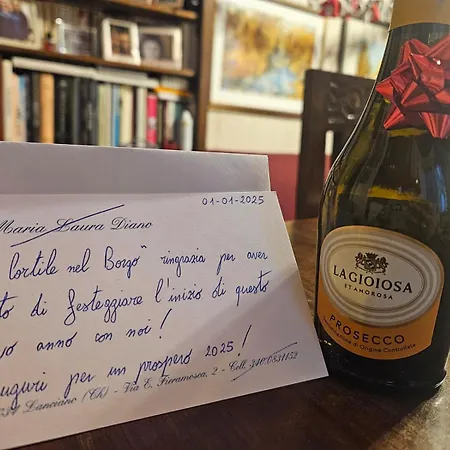 01-01-2025
Maria Laura Diano
Cortile nel Borgo" ringrazia per aver
to di festeggiare l'inizio di questo
vo anno con noi!
auguri per un prospero 2025!
Lanciano (Ch) - Via E. Fieramosca, 2 - Cell.
LAGIOIOSA
ET AMOROSA
PROSECCO
Denominazione di Origine Controllata